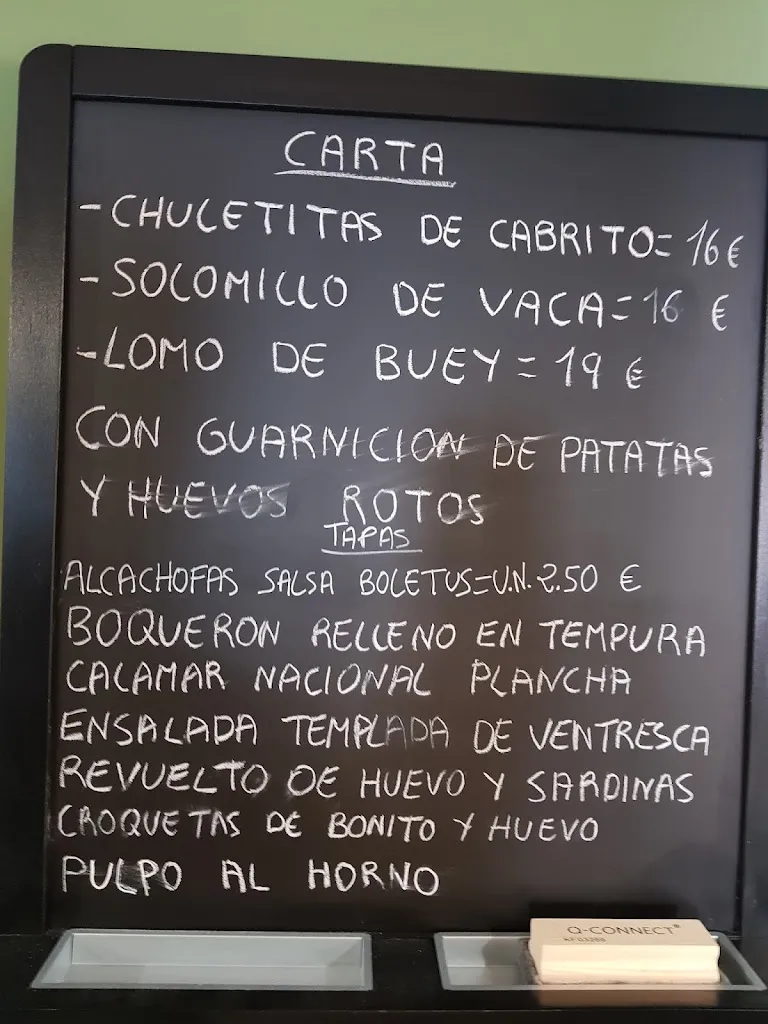 CARTA
-CHULETITAS DE CABRITO= 16 €
-SOLOMILLO DE VACA=16 €
-LOMO DE BUEY=19 €
CON GUARNICION DE PATATAS
Y HUEVOS ROTOS
TAPAS
ALCACHOFAS SALSA BOLETUS=U.N. 2.50 €
BOQUERON RELLENO EN TEMPURA
CALAMAR NACIONAL PLANCHA
ENSALADA TEMPLADA DE VENTRESCA
REVUELTO DE HUEVO Y SARDINAS
CROQUETAS DE BONITO Y HUEVO
PULPO AL HORNO
Q-CONNECT®
KF03288